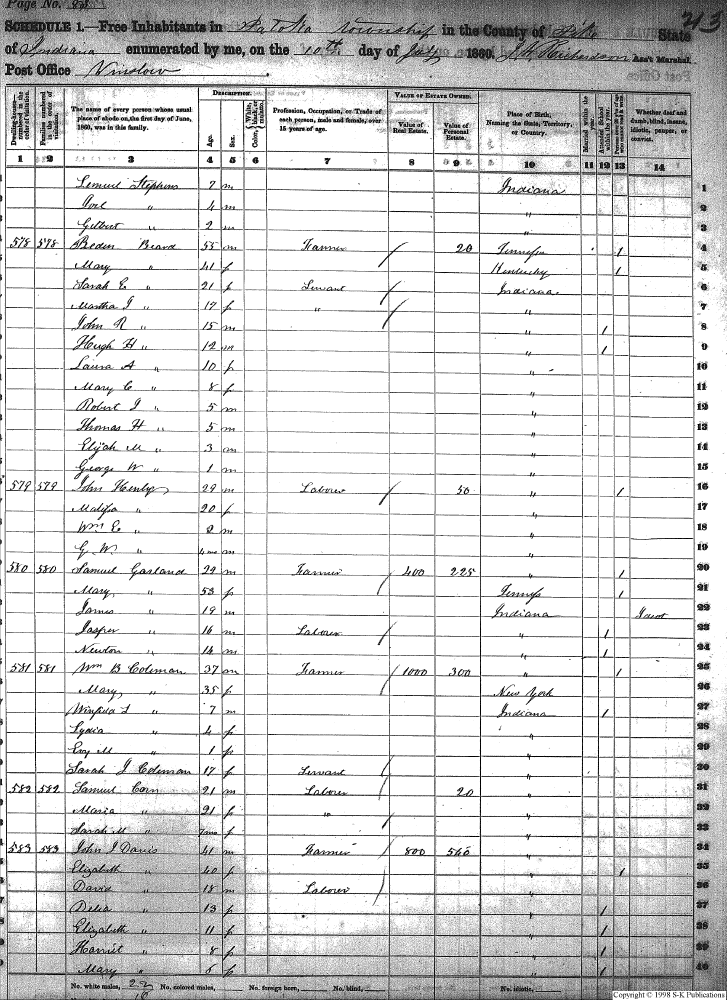 Page No. 88
SCHEDULE 1.—Free Inhabitants in Patoka Township in the County of Pike State
43
of Indiana enumerated by me, on the 10th day of July 1860. Richardson Ass't Marshal.
Post Office Winslow
Dwelling-houses numbered in the order of visitation.
Families numbered in the order of visitation.
The name of every person whose usual place of abode on the first day of June, 1860, was in this family.
DESCRIPTION.
Age.
Sex.
Color, White, black, or mulatto.
Profession, Occupation, or Trade of each person, male and female, over 15 years of age.
VALUE OF ESTATE OWNED.
Value of Real Estate.
Value of Personal Estate.
Place of Birth, Naming the State, Territory, or Country.
Married within the year.
Attended School within the year.
Whether deaf and dumb, blind, insane, idiotic, pauper, or convict.
1 2 3 4 5 6 7 8 9 10 11 12 13 14
Lemuel Stephens 7 m Indiana 1
Joel " 4 m " 2
Gilbert " 2 m " 3
578 578 Beard 55 m Farmer / 20 Tennessee / 4
Mary " 41 f Kentucky / 5
Sarah E " 21 f Servant / Indiana 6
Martha J " 17 f " / " 7
John R " 15 m / " / 8
Hugh H " 12 m " / 9
Laura A " 10 f " 10
Mary C " 8 f " 11
Robert J " 5 m " 12
Thomas H " 5 m " 13
Elijah M " 3 m " 14
George W " 1 m " 15
579 579 John Henley 29 m Laborer / 50 " / 16
Malissa " 20 f " 17
Wm E " 2 m " 18
G W " m " 19
580 580 Samuel Garland 29 m Farmer / 400 225 " / 20
Mary " 53 f Tenness / 21
James " 19 m Indiana 22
Jasper " 16 m Laborer / " / 23
Newton " 14 m " / 24
581 581 Wm B Coleman 37 m Farmer / 1000 300 " / 25
Mary " 35 f New York 26
" 7 m Indiana / 27
Lydia " 4 f " 28
M " 1 f " 29
Sarah J Coleman 17 f Servant / " 30
582 582 Samuel Corn 21 m Laborer / 20 " 31
Maria " 21 f " " 32
Sarah M " f " 33
583 583 John J Davis 41 m Farmer / 800 540 " 34
Elizabeth " 40 f " / 35
David " 18 m Laborer / " 36
Delia " 13 f " / 37
Elizabeth " 11 f " / 38
Harriet " 8 f " / 39
Mary " 6 f " / 40
No. white males, 22 No. colored males, No. foreign born, No. blind, No. idiotic,
18
Copyright © 1998 S-K Publications